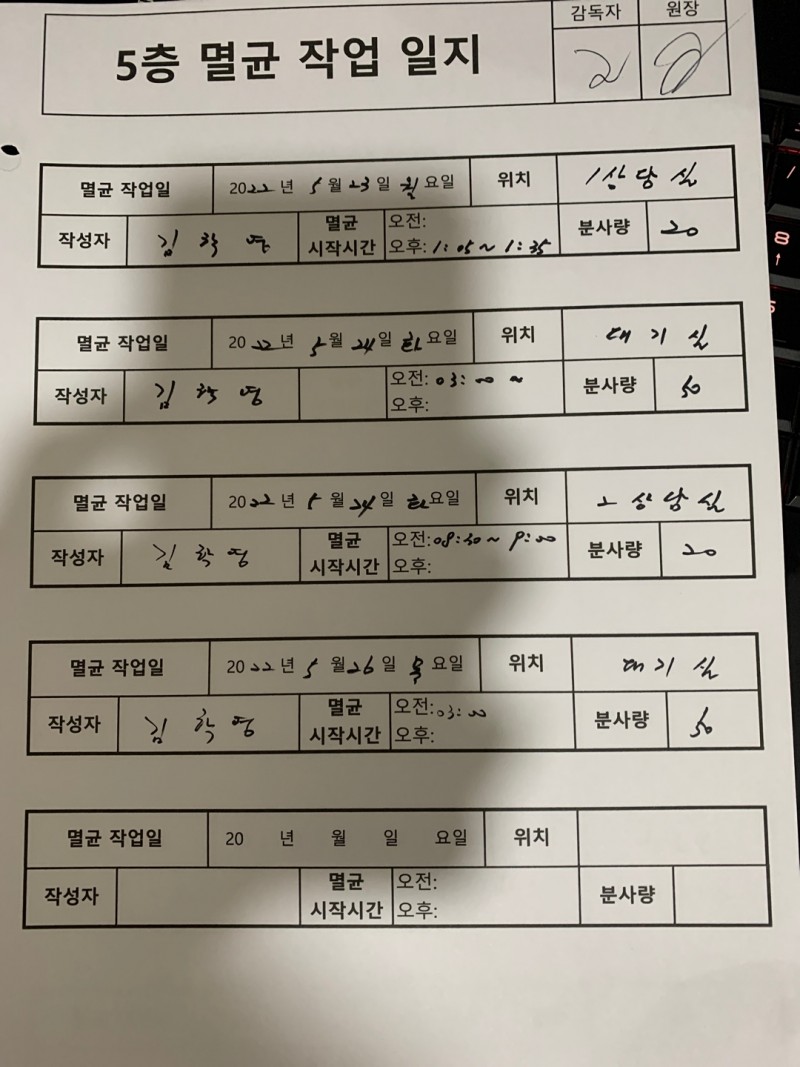 5층 멸균 작업 일지
감독자 원장
멸균 작업일 2022년 5월 23일 월요일 위치 1상담실
작성자 김학영 멸균 시작시간 오전: 분사량 20
오후: 1:05~1:35
멸균 작업일 2022년 5월 24일 화요일 위치 대기실
작성자 김학영 오전: 03:00~ 분사량 50
오후:
멸균 작업일 2022년 5월 24일 화요일 위치 2상담실
작성자 김학영 멸균 시작시간 오전: 08:30~9:00 분사량 20
오후:
멸균 작업일 2022년 5월 26일 목요일 위치 대기실
작성자 김학영 멸균 시작시간 오전: 03:00 분사량 50
오후:
멸균 작업일 20 년 월 일 요일 위치
작성자 멸균 시작시간 오전: 분사량
오후: